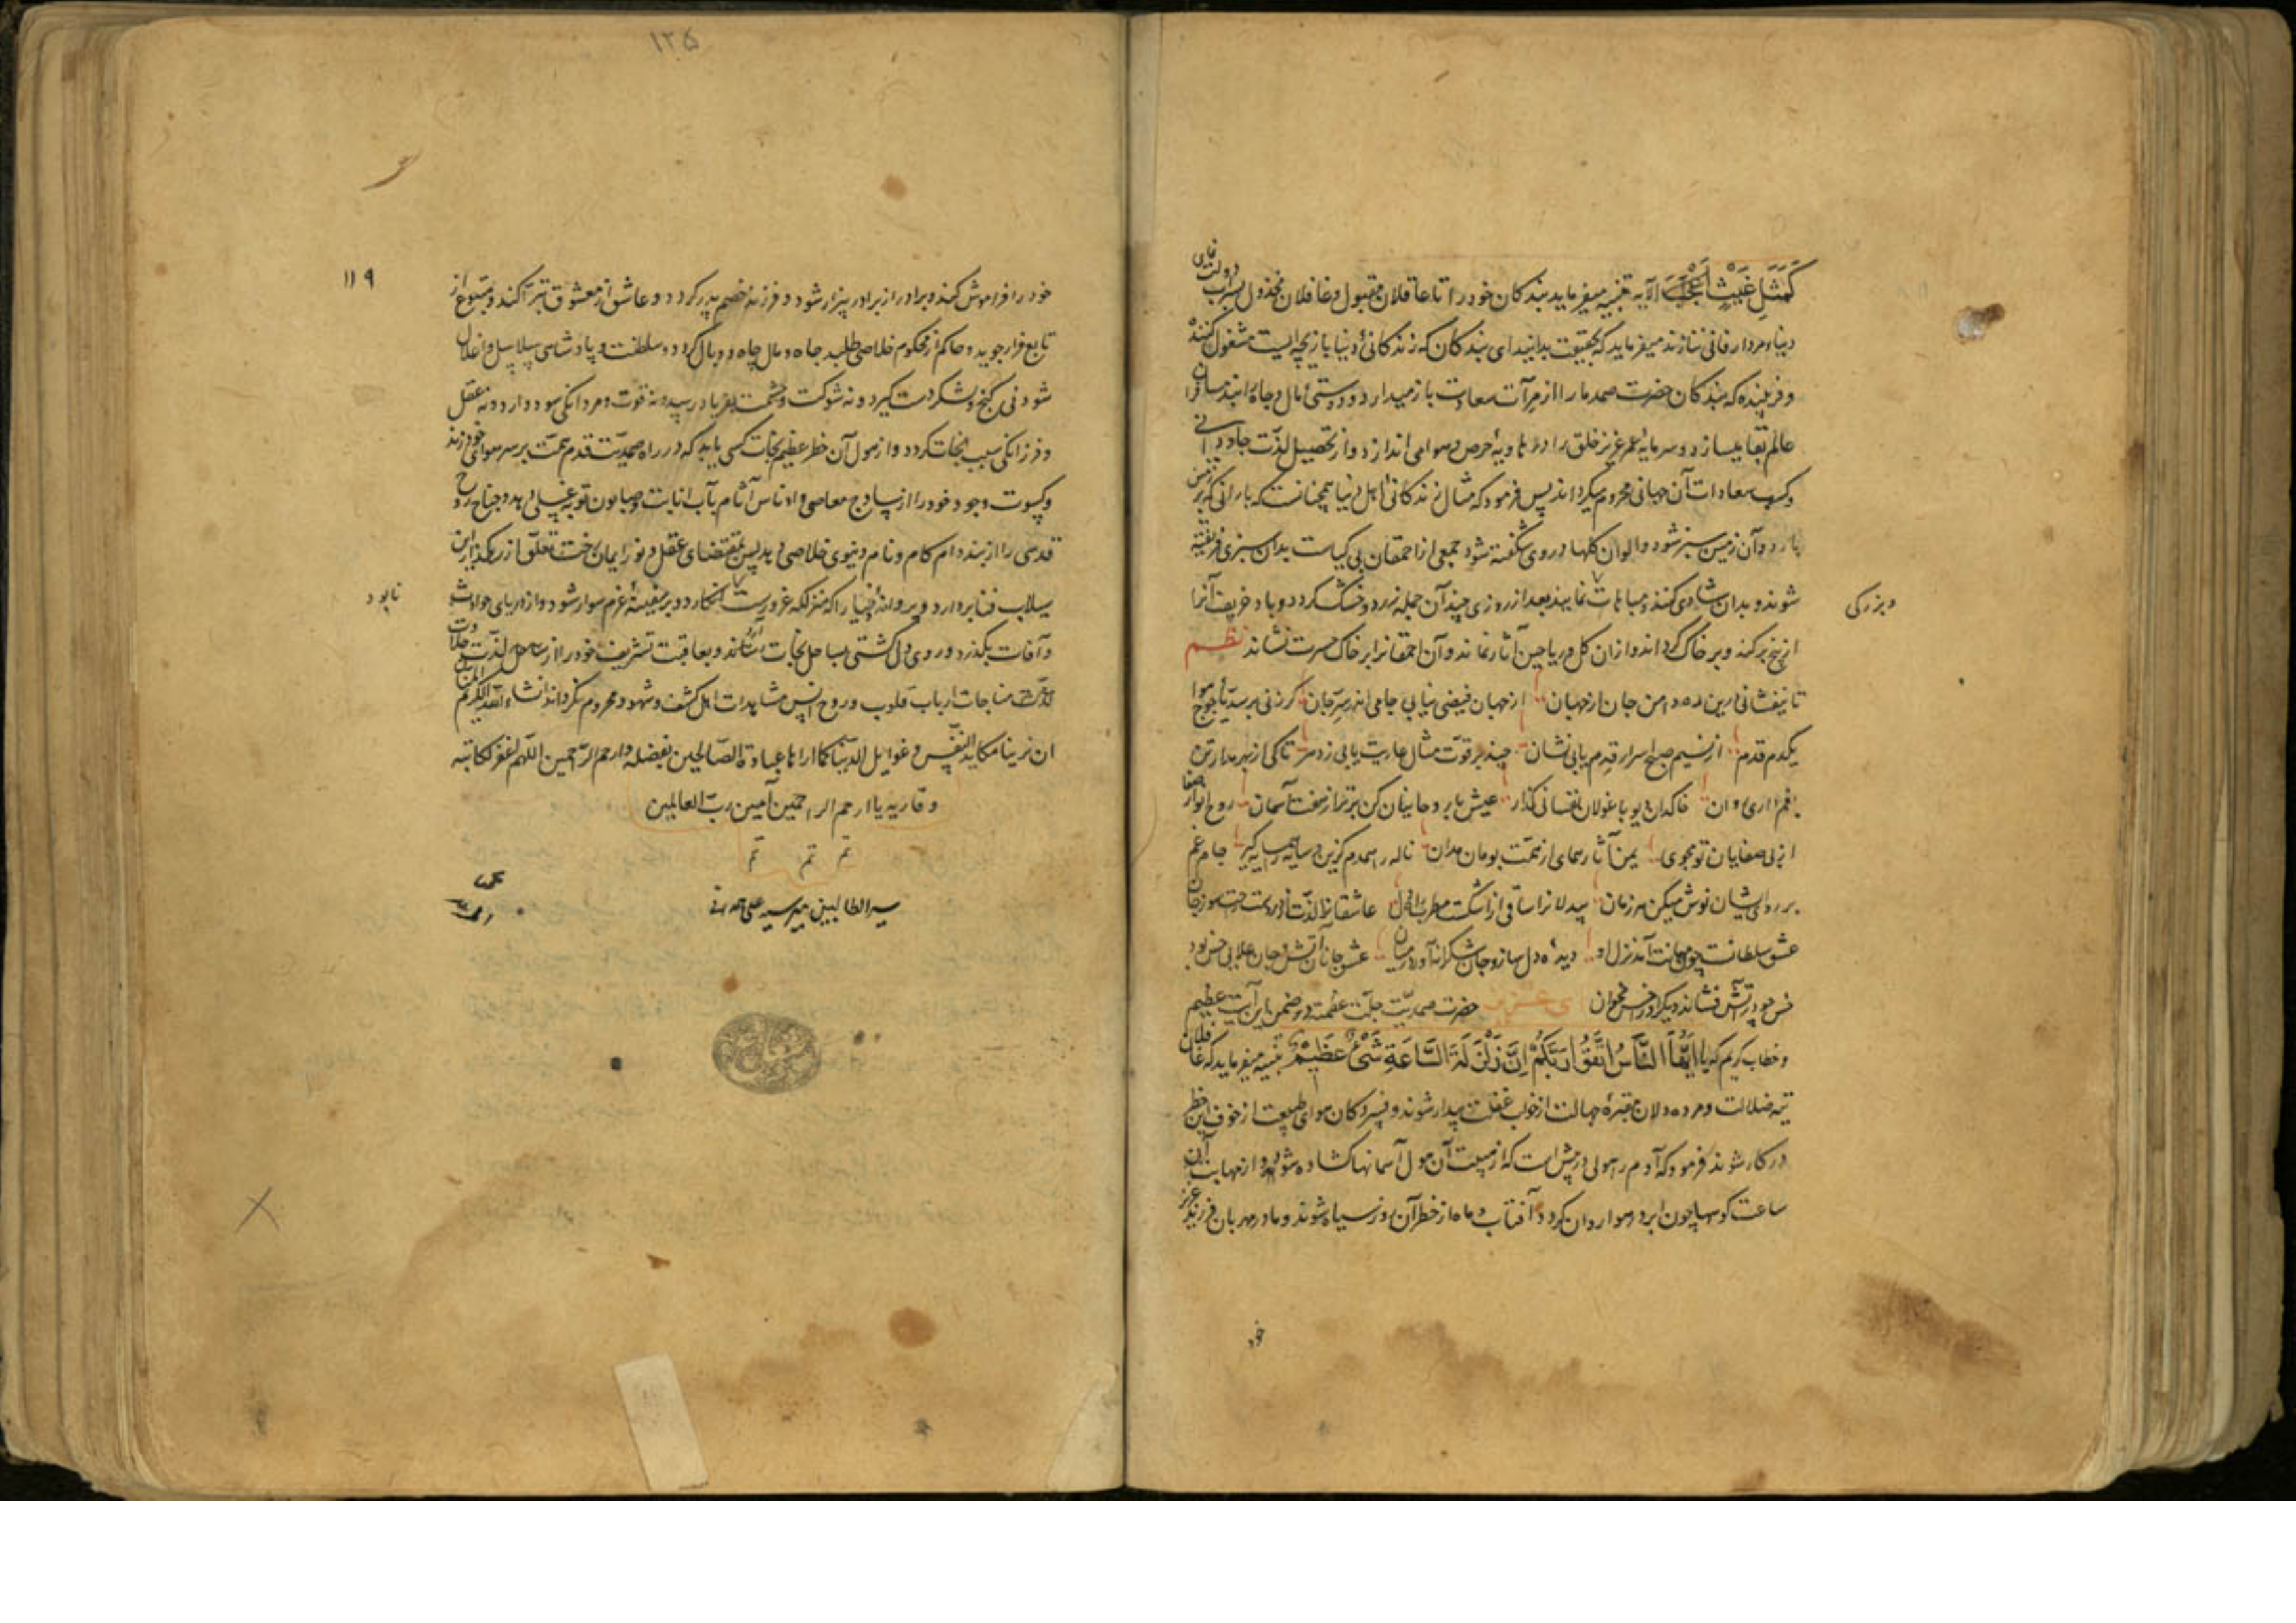 کَمَثَلِ غَیْثٍ اَعْجَبَ الآیه تنبیه میفرماید بندکان خود را تا عاقلان مقبول و غافلان مخذول بسراب دولت فانی
دنیاء مردار فانی ننازند میفرماید که بحقیقت بدانید ای بندکان که زندکانئ دنیا بازیچه ایست مشغول کننده
و فریبنده که بندکان حضرت صمد ما را از مرآت سعادت باز میدارد و دوستئ مال و جاه
عالم بقا میسازد و سرمایه عمر عزیز خلق را در هاویهٔ حرص و هوا می اندازد و از تحصیل لذّت جاودانی
و کسب سعادات آن جهانی محروم میکرداند پس فرمود که مثال زندکانئ اهل دنیا همچنانست که بارانی که بر زمین
بارد و آن زمین سبز شود و الوان کلها در وی شکفته شود جمعی از احمقان بی کیاست بدان سبزی فریفته
شوند و بدان شادی کنند و مباهات نمایند بعد از روزی چند آن جمله زرد و خشک کردد و باد خریف آنرا
و بزرکی
از بیخ برکند و بر خاک کرداند و از آن کل و ریاحین آثار نماند و آن احمقانرا بر خاک حسرت نشاند نظم
تا نیفشانی درین ره دامن جان از جهان از جهان فیضی نیابی جامی اندر بزم جان کر زنی بر سدّ یأجوج هوا
یکدم قدم از نسیم صبح اسرار قدم یابی نشان چند بر قوت مثال عاریت تا کی از بهر مدار تن
خاکدان دیو با غولان نفسانی کذار عیش با روحانیان کن برتر از هفت آسمان روح انوار صفا
از بی صفایان تو مجوی یمن آثار همای از همّت بومان مدان ناله را همدم کزین و سایه همسایه کیر جام غم
بر روی ایشان نوش میکن هر زمان بیدلانرا ساقی از اشکست مطرب عاشقانرا لذّت از دردست
عشق سلطانست چون دیدهٔ دل ساز و جان شکرانه آور در میان عشق جانان آتش و جان
خس چو در آتش فشاند دیکر او را خس مخوان حضرت صمدیّت جلّت عظمته در ضمن این آیت عظیم
و خطاب کریم که یا اَیُّهَا النَّاسُ اتَّقُوا رَبَّکُمْ اِنَّ زَلْزَلَةَ السَّاعَةِ شَیْءٌ عَظِیْمٌ تنبیه میفرماید که غافلان
تیه ضلالت و مرده دلان مقبرهٔ جهالت از خواب غفلت بیدار شوند و فسردکان هوای طبیعت از خوف این خطر
در کار شوند فرمود که آدم را هولی در پیش است که از هیبت آن هول آسمانها کشاده شود و از مهابت آن
ساعت کوهها چون ابر در هوا روان کردد و آفتاب و ماه از خطر آن روز سیاه شوند و مادر مهربان فرزند عزیز
خود
۱۲۵
۱۱۹
خود را فراموش کند و برادر از برادر بیزار شود و فرزند خصم پدر کردد و عاشق از معشوق تبرّا کند و متبوع از
تابع فرار جوید و حاکم از محکوم خلاصی طلبد جاه و مال چاه و وبال کردد و سلطنت و پادشاهی سلاسل و اغلال
شود نی کنج و لشکر دست کیرد و نه شوکت و حشمت بفریاد رسد و نه قوت و مردانکی سود دارد و نه عقل
و فرزانکی سبب نجات کردد و از هول آن خطر عظیم نجات کسی یابد که در راه صمدیّت قدم همّت بر سر هوای خود زند
و کسوت وجود خود را از اوساخ معاصی و ادناس آثام بآب انابت و صابون توبه غسلی دهد و جناح روح
قدسی را از بند دام کام و نام دنیوی خلاصی دهد پس بمقتضای عقل و نور ایمان رخت تعلّق از رهکذر این
سیلاب فنا بردارد و ویرانهٔ دنیا را که منزلکه غرورست انکارد و بر سفینهٔ عزم سوار شود و از دریای حوادث
نابود
و آفات بکذرد و روی دل کشتی بساحل نجات آرد و بعاقبت تشریف خود را از ساحل لذّت حلاوت
مناجات ارباب قلوب و روح انس مشاهدات اهل کشف و شهود محروم نکرداند انشاء الله الکریم المنّان
ان ترینا مکاید النفس و غوایل الدنیا کما اراها عباده الصّالحین بفضله و ارحم الرّاحمین اللهم اغفر لکاتبه
و قاریه یا ارحم الراحمین آمین ربّ العالمین
تم تم تم
سیر الطالبین میر سید علی همدانی